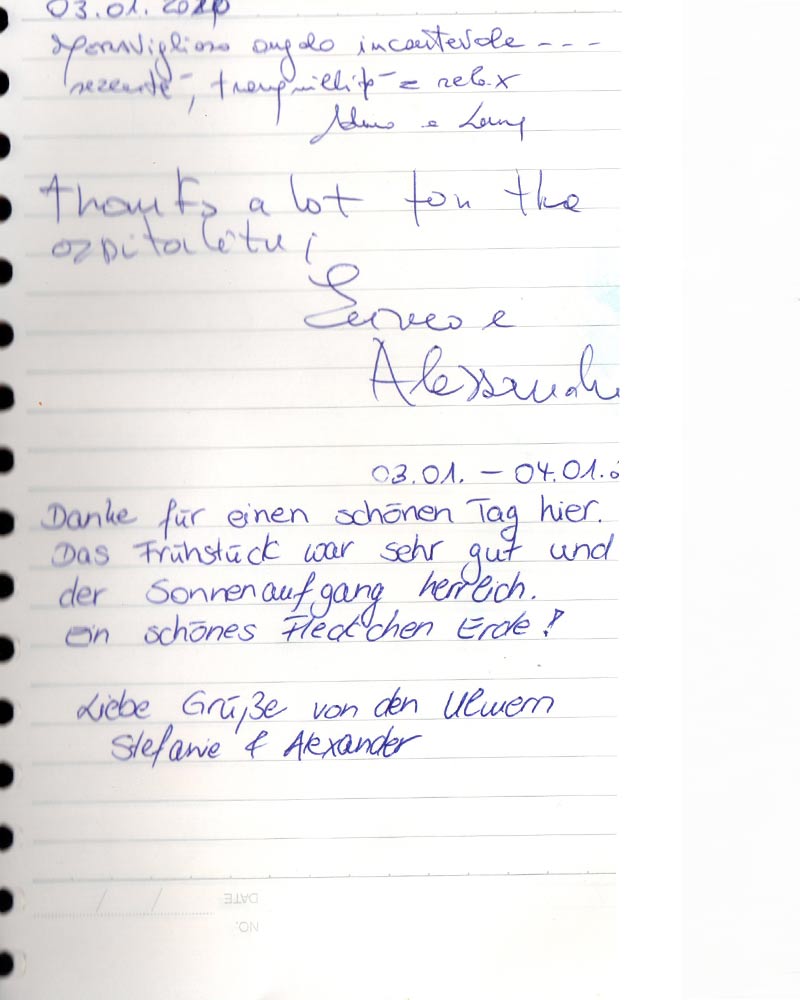 03.01.
Meraviglioso angolo incantevole - - -
= relax
e
Thanks a lot for the
ospitalitu!
e
Alessandr
03.01. – 04.01.
Danke für einen schönen Tag hier.
Das Frühstück war sehr gut und
der Sonnenaufgang herrlich.
ein schönes Fleckchen Erde!
Liebe Grüße von den Ulmern
Stefanie & Alexander
DATE / /
NO.